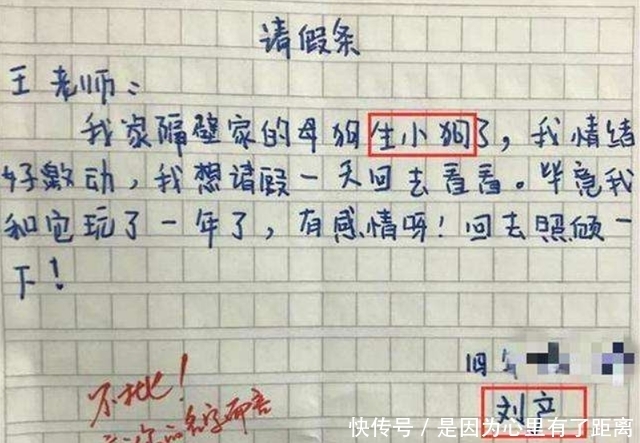 请假条
王老师：
我家隔壁家的母狗生小狗了，我情绪
好激动，我想请假一天回去看看。毕竟我
和它玩了一年了，有感情呀！回去照顾一
下！
旧
刘产
不批！
快传号/是因为心里有了距离